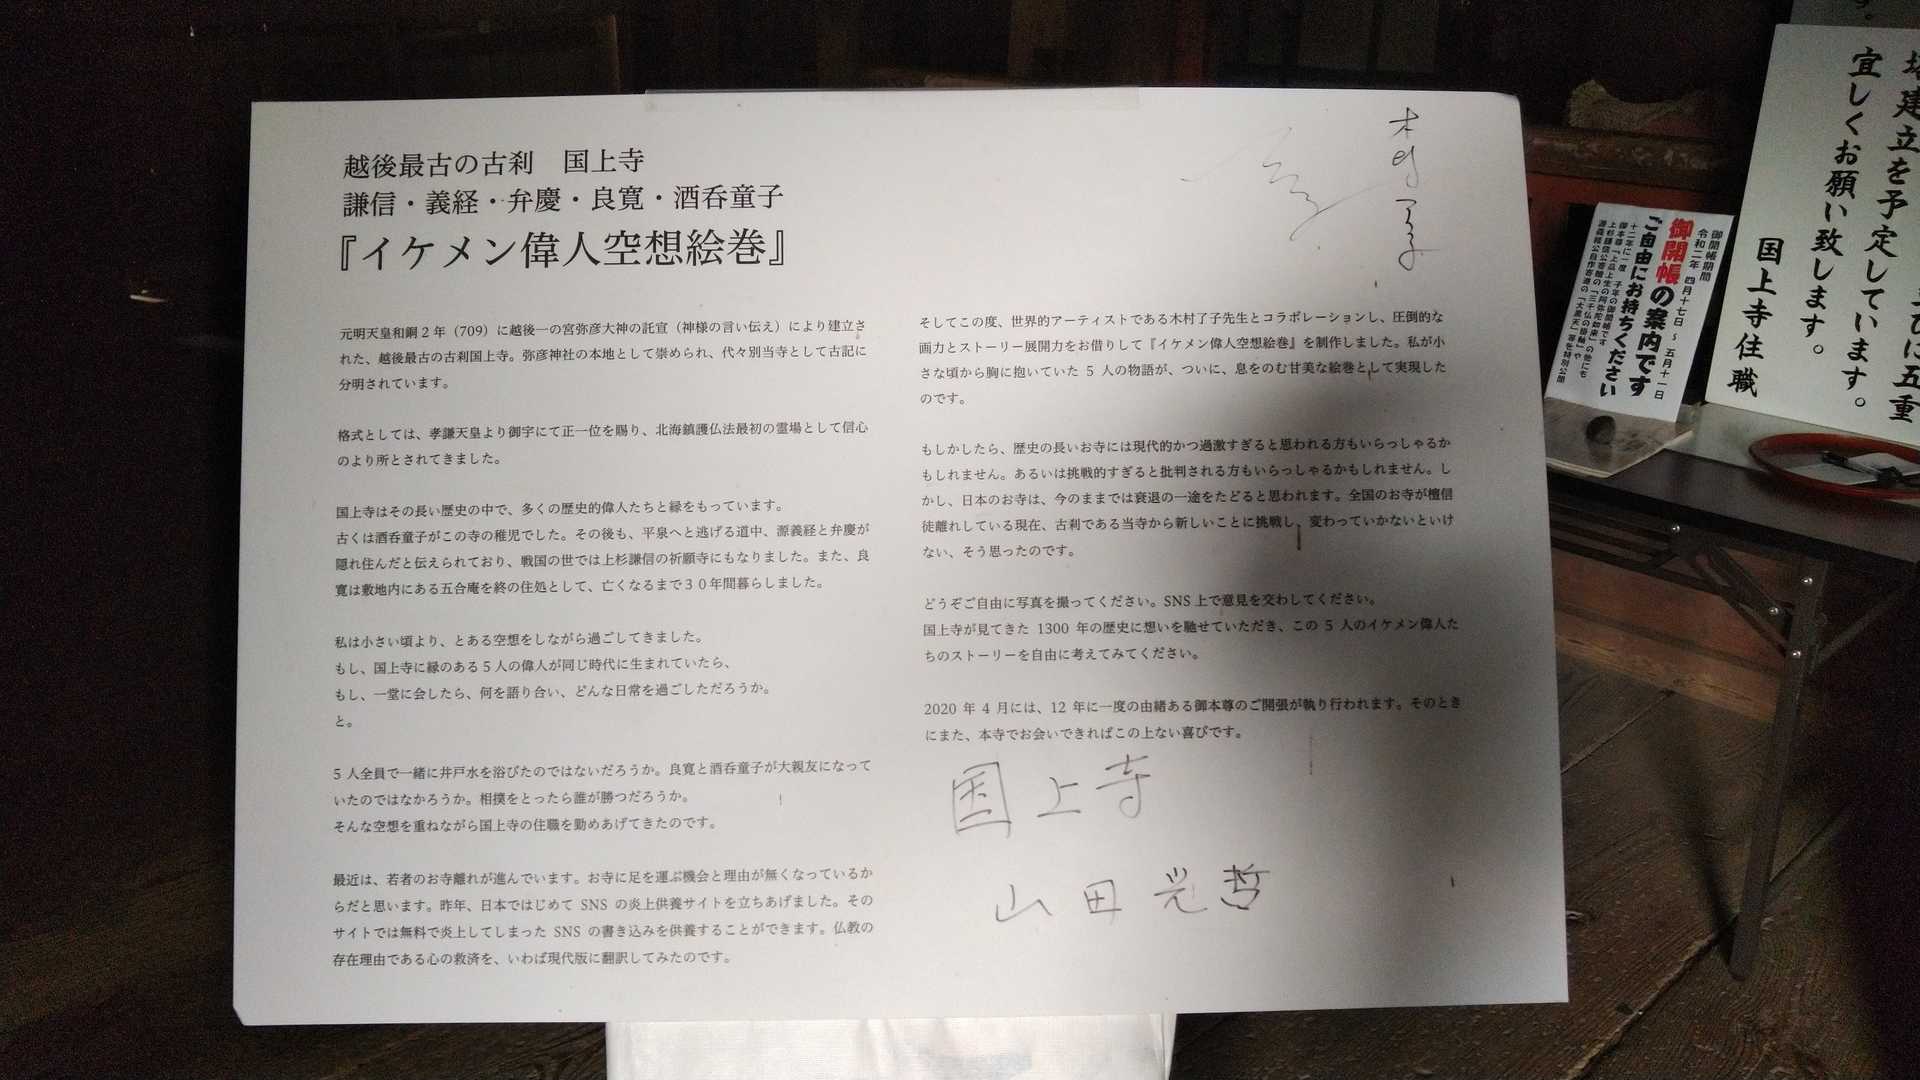 越後最古の古刹　国上寺
謙信・義経・弁慶・良寛・酒呑童子
『イケメン偉人空想絵巻』
元明天皇和銅2年（709）に越後一の宮弥彦大神の託宣（神様の言い伝え）により建立さ
れた、越後最古の古刹国上寺。弥彦神社の本地として崇められ、代々別当寺として古記に
分明されています。
格式としては、孝謙天皇より御宇にて正一位を賜り、北海鎮護仏法最初の霊場として信心
のより所とされてきました。
国上寺はその長い歴史の中で、多くの歴史的偉人たちと縁をもっています。
古くは酒呑童子がこの寺の稚児でした。その後も、平泉へと逃げる道中、源義経と弁慶が
隠れ住んだと伝えられており、戦国の世では上杉謙信の祈願寺にもなりました。また、良
寛は敷地内にある五合庵を終の住処として、亡くなるまで３０年間暮らしました。
私は小さい頃より、とある空想をしながら過ごしてきました。
もし、国上寺に縁のある５人の偉人が同じ時代に生まれていたら、
もし、一堂に会したら、何を語り合い、どんな日常を過ごしただろうか。
と。
5人全員で一緒に井戸水を浴びたのではないだろうか。良寛と酒呑童子が大親友になって
いたのではなかろうか。相撲をとったら誰が勝つだろうか。
そんな空想を重ねながら国上寺の住職を勤めあげてきたのです。
最近は、若者のお寺離れが進んでいます。お寺に足を運ぶ機会と理由が無くなっているか
らだと思います。昨年、日本ではじめて SNS の炎上供養サイトを立ちあげました。その
サイトでは無料で炎上してしまった SNS の書き込みを供養することができます。仏教の
存在理由である心の救済を、いわば現代版に翻訳してみたのです。
木村了子
そしてこの度、世界的アーティストである木村了子先生とコラボレーションし、圧倒的な
画力とストーリー展開力をお借りして『イケメン偉人空想絵巻』を制作しました。私が小
さな頃から胸に抱いていた 5 人の物語が、ついに、息をのむ甘美な絵巻として実現した
のです。
もしかしたら、歴史の長いお寺には現代的かつ過激すぎると思われる方もいらっしゃるか
もしれません。あるいは挑戦的すぎると批判される方もいらっしゃるかもしれません。し
かし、日本のお寺は、今のままでは衰退の一途をたどると思われます。全国のお寺が檀信
徒離れしている現在、古刹である当寺から新しいことに挑戦し、変わっていかないといけ
ない、そう思ったのです。
どうぞご自由に写真を撮ってください。SNS 上で意見を交わしてください。
国上寺が見てきた 1300 年の歴史に想いを馳せていただき、この 5 人のイケメン偉人た
ちのストーリーを自由に考えてみてください。
2020 年 4 月には、12 年に一度の由緒ある御本尊のご開張が執り行われます。そのとき
にまた、本寺でお会いできればこの上ない喜びです。
国上寺
山田光哲
御開帳期間
令和二年 四月十七日～ 五月十一日
御開帳の案内です
ご自由にお持ちください
十二年に一度 子年の御開帳です
御本尊「上品上生の阿弥陀如来」の他にも
上杉謙信公寄贈の「三千仏の掛軸」や
源義経公自作寄進の「大黒天」等を特別公開
に五重
建立を予定しています。
宜しくお願い致します。
国上寺住職